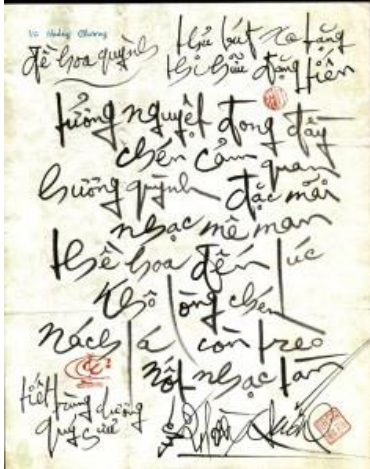 Vũ Hoàng Chương
đề hoa quỳnh
thủ bút tặng
thi hữu đặng tiến
tưởng nguyệt đong đầy
chén cảm quan
hương quỳnh đặc mãi
nhạc mê man
thề hoa đến lúc
khô lòng chén
nách lá còn treo
nốt nhạc tàn
tiết trùng dương
quý sửu